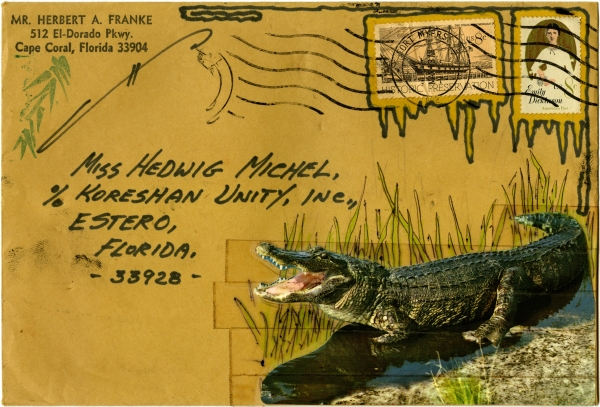 MR. HERBERT A. FRANKE
512 El-Dorado Pkwy.
Cape Coral, Florida 33904
FORT MYERS
US 8c
HISTORIC PRESERVATION
Emily
Dickinson
Miss HEDWIG MICHEL,
% KORESHAN UNITY, INC.,
ESTERO,
FLORIDA.
- 33928 -